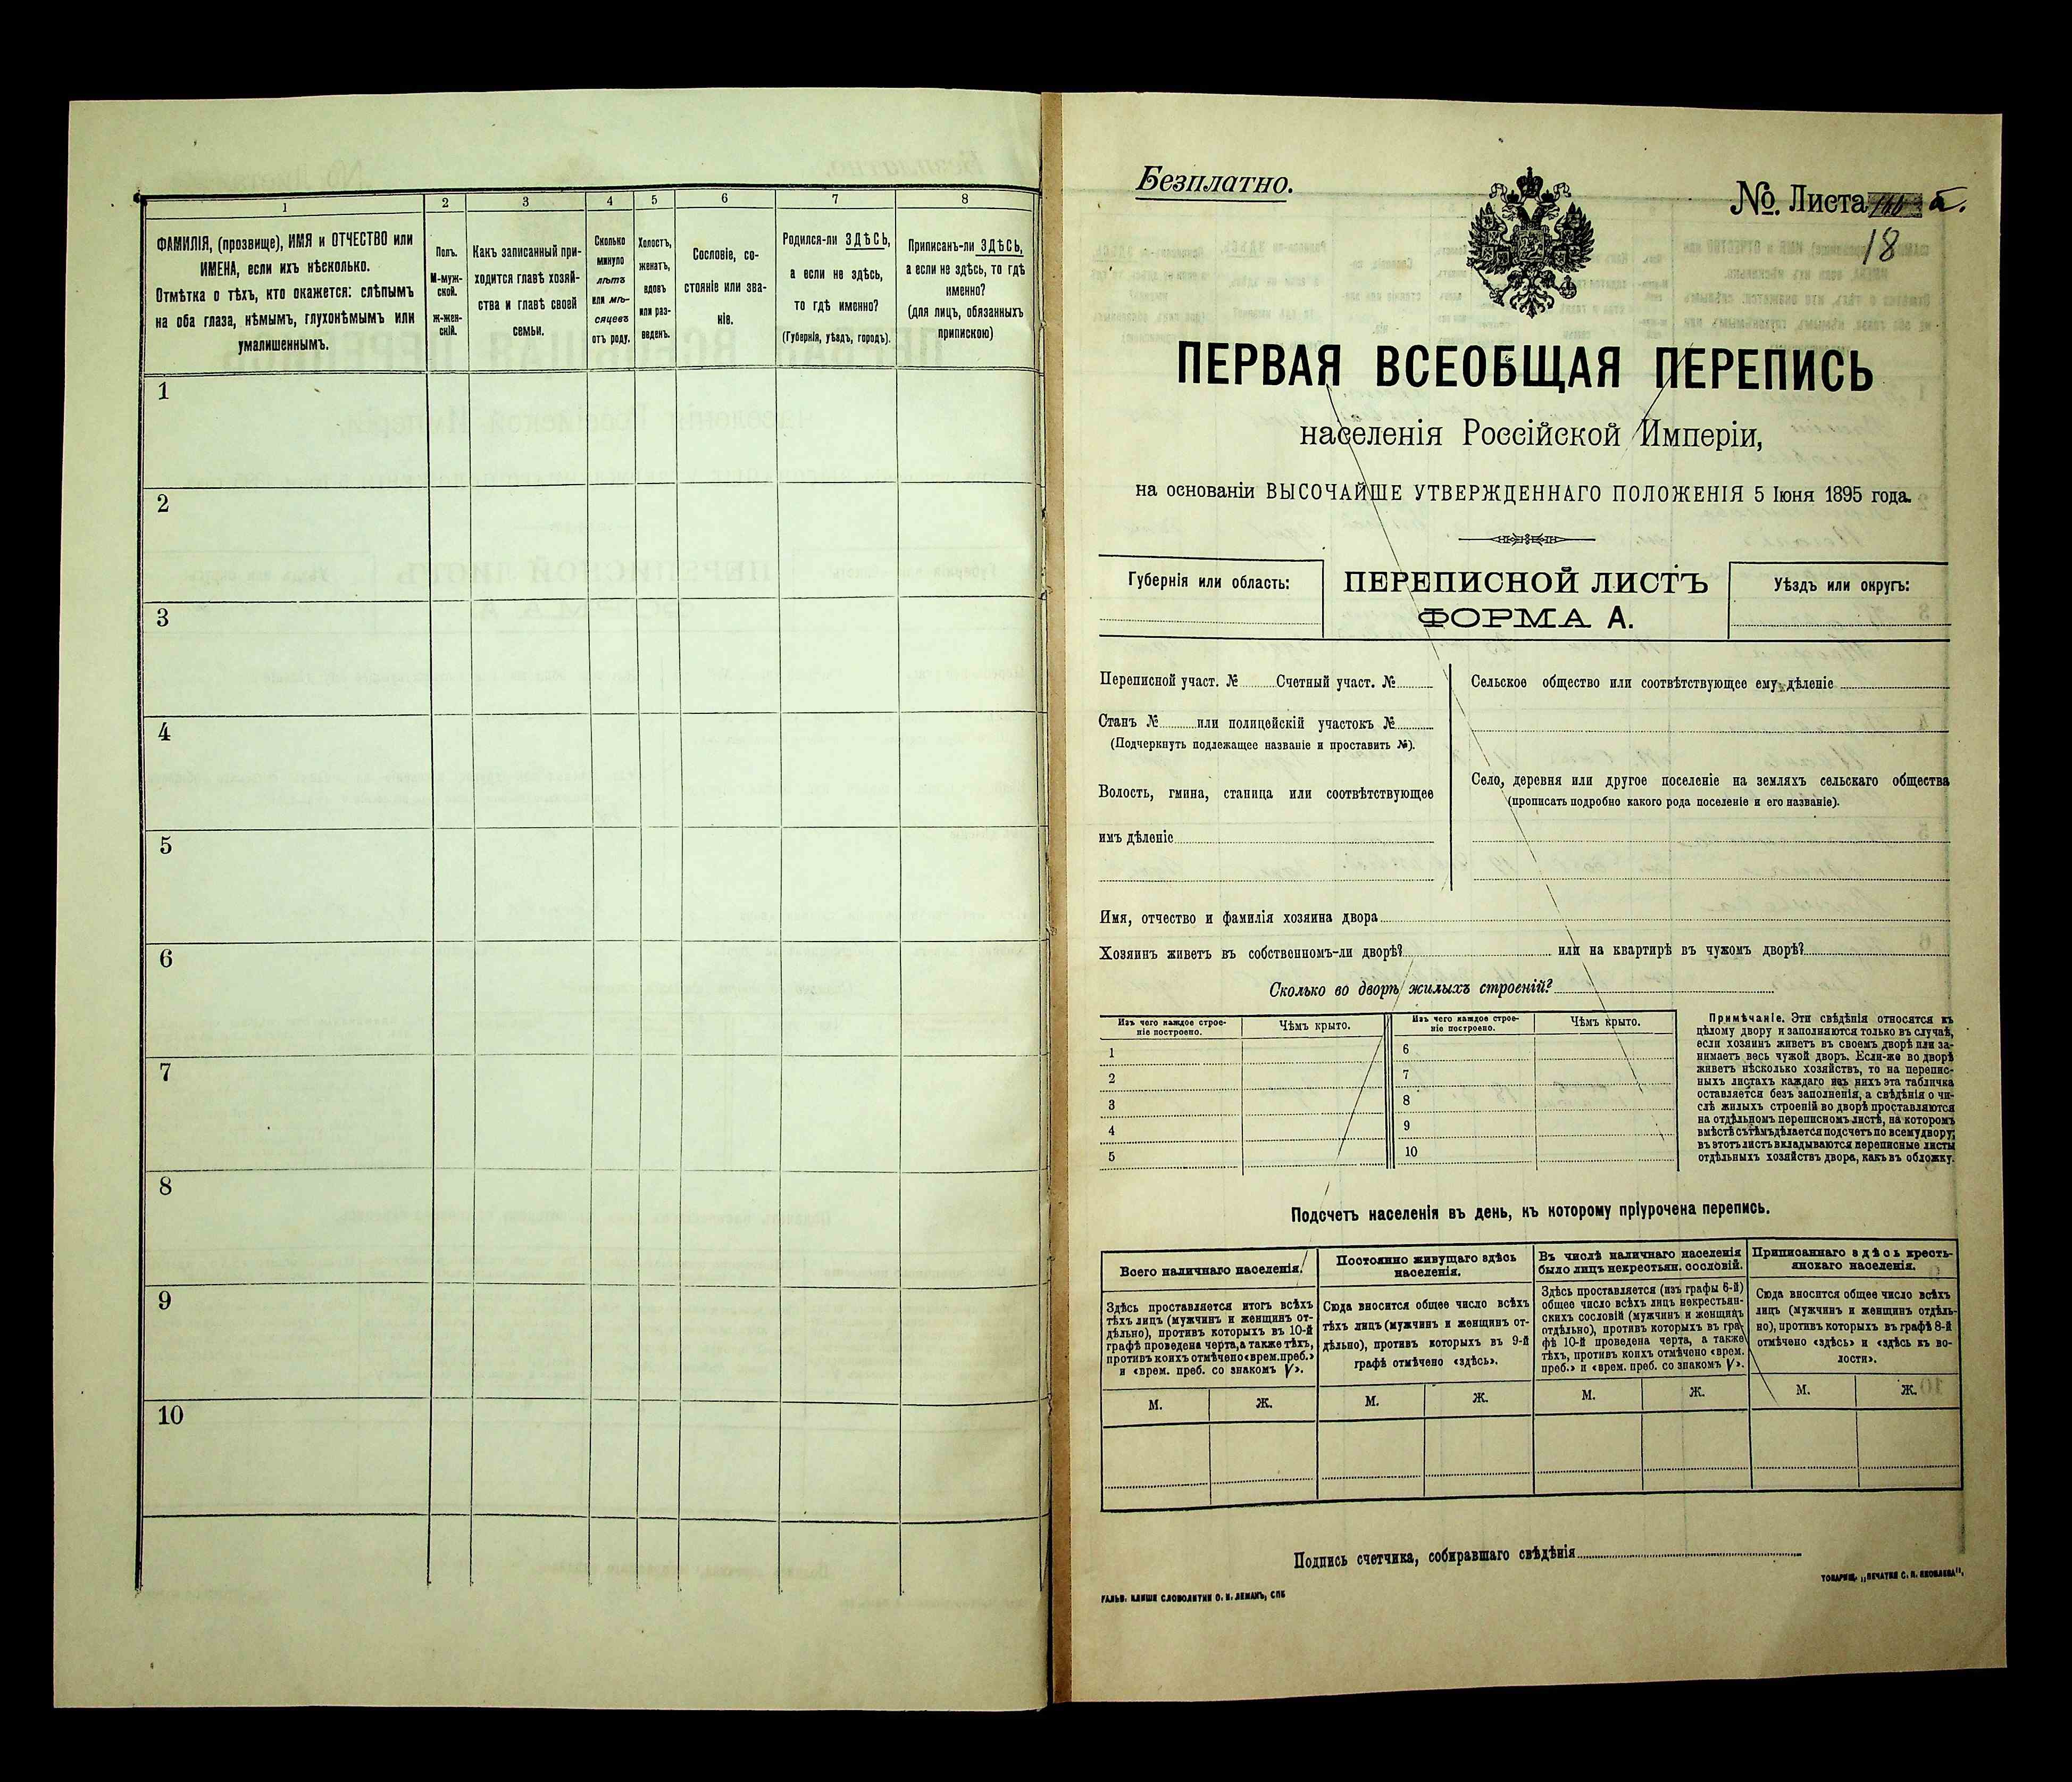 1
2
3
4
5
6
7
8
ФАМИЛІЯ, (прозвище), ИМЯ и ОТЧЕСТВО или
ИМЕНА, если ихъ нѣсколько.
Отмѣтка о тѣхъ, кто окажется: слѣпымъ
на оба глаза, нѣмымъ, глухонѣмымъ или
умалишеннымъ.
Полъ.
М-муж-
ской.
ж-жен-
скій.
Какъ записанный при-
ходится главѣ хозяй-
ства и главѣ своей
семьи.
Сколько
минуло
лѣтъ
или мѣ-
сяцевъ
отъ роду.
Холостъ,
женатъ,
вдовъ
или раз-
веденъ.
Сословіе, со-
стояніе или зва-
ніе.
Родился-ли ЗДѢСЬ,
а если не здѣсь,
то гдѣ именно?
(Губернія, уѣздъ, городъ).
Приписанъ-ли ЗДѢСЬ,
а если не здѣсь, то гдѣ
именно?
(для лицъ, обязанныхъ
припискою)
1
2
3
4
5
6
7
8
9
10
Безплатно.
№. Листа а.
18
ПЕРВАЯ ВСЕОБЩАЯ ПЕРЕПИСЬ
населенія Россійской Имперіи,
на основаніи ВЫСОЧАЙШЕ УТВЕРЖДЕННАГО ПОЛОЖЕНІЯ 5 Іюня 1895 года.
Губернія или область:
ПЕРЕПИСНОЙ ЛИСТЪ
ФОРМА А.
Уѣздъ или округъ:
Переписной участ. № Счетный участ. №
Станъ № или полицейскій участокъ №
(Подчеркнуть подлежащее названіе и проставить №).
Волость, гмина, станица или соотвѣтствующее
имъ дѣленіе
Сельское общество или соотвѣтствующее ему дѣленіе
Село, деревня или другое поселеніе на земляхъ сельскаго общества
(прописать подробно какого рода поселеніе и его названіе).
Имя, отчество и фамилія хозяина двора
Хозяинъ живетъ въ собственномъ-ли дворѣ? или на квартирѣ въ чужомъ дворѣ?
Сколько во дворѣ жилыхъ строеній?
Изъ чего каждое строе-
ніе построено.
Чѣмъ крыто.
Изъ чего каждое строе-
ніе построено.
Чѣмъ крыто.
1
2
3
4
5
6
7
8
9
10
Примѣчаніе. Эти свѣдѣнія относятся къ
цѣлому двору и заполняются только въ случаѣ,
если хозяинъ живетъ въ своемъ дворѣ или за-
нимаетъ весь чужой дворъ. Если-же во дворѣ
живетъ нѣсколько хозяйствъ, то на перепис-
ныхъ листахъ каждаго изъ нихъ эта табличка
оставляется безъ заполненія, а свѣдѣнія о чи-
слѣ жилыхъ строеній во дворѣ проставляются
на отдѣльномъ переписномъ листѣ, на которомъ
вмѣстѣ съ тѣмъ дѣлается подсчетъ по всему двору;
въ этотъ листъ вкладываются переписные листы
отдѣльныхъ хозяйствъ двора, какъ въ обложку.
Подсчетъ населенія въ день, къ которому пріурочена перепись.
Всего наличнаго населенія.
Здѣсь проставляется итогъ всѣхъ
тѣхъ лицъ (мужчинъ и женщинъ от-
дѣльно), противъ которыхъ въ 10-й
графѣ проведена черта, а также тѣхъ,
противъ коихъ отмѣчено «врем. преб.»
и «врем. преб. со знакомъ V».
Постоянно живущаго здѣсь
населенія.
Сюда вносится общее число всѣхъ
тѣхъ лицъ (мужчинъ и женщинъ от-
дѣльно), противъ которыхъ въ 9-й
графѣ отмѣчено «здѣсь».
Въ числѣ наличнаго населенія
было лицъ некрестьян. сословій.
Здѣсь проставляется (изъ графы 6-й)
общее число всѣхъ лицъ некрестьян-
скихъ сословій (мужчинъ и женщинъ
отдѣльно), противъ которыхъ въ гра-
фѣ 10-й проведена черта, а также
тѣхъ, противъ коихъ отмѣчено «врем.
преб.» и «врем. преб. со знакомъ V».
Приписаннаго здѣсь кресть-
янскаго населенія.
Сюда вносится общее число всѣхъ
лицъ (мужчинъ и женщинъ отдѣль-
но), противъ которыхъ въ графѣ 8-й
отмѣчено «здѣсь» и «здѣсь къ во-
лости».
М.
Ж.
М.
Ж.
М.
Ж.
М.
Ж.
Подпись счетчика, собиравшаго свѣдѣнія
ГАЛЬВ. КЛИШЕ СЛОВОЛИТНИ О. И. ЛЕМАНЪ, СПБ
ТОВАРИЩ. „ПЕЧАТНЯ С. П. ЯКОВЛЕВА",